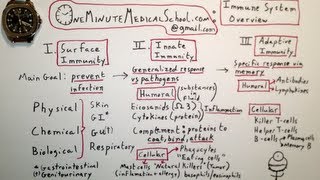 OneMinuteMedicalSchool.com
@gmail.com
Immune System
Overview
I. Surface
Immunity
II. Innate
Immunity
III. Adaptive
Immunity
Main Goal: prevent
infection
Generalized response
vs pathogens
Specific response via
memory
Humoral (substances/
fluids)
Humoral Antibodies
Lymphokines
Physical
Chemical
Biological
Skin
GI*
GU(†)
Respiratory
Eicosanoids (Ω3)
Cytokines (protein)
Inflammation
Complement → proteins to
coat, bind, attack
Cellular
Killer T-cells
Helper T-cells
B-cells
Plasma cells
memory B
Cellular Phagocytes
"Eating cells"
Mast cells "Natural Killers" (Tumor)
(inflammation + allergy) basophils, eosinophils
* gastrointestinal
(†) Genitourinary